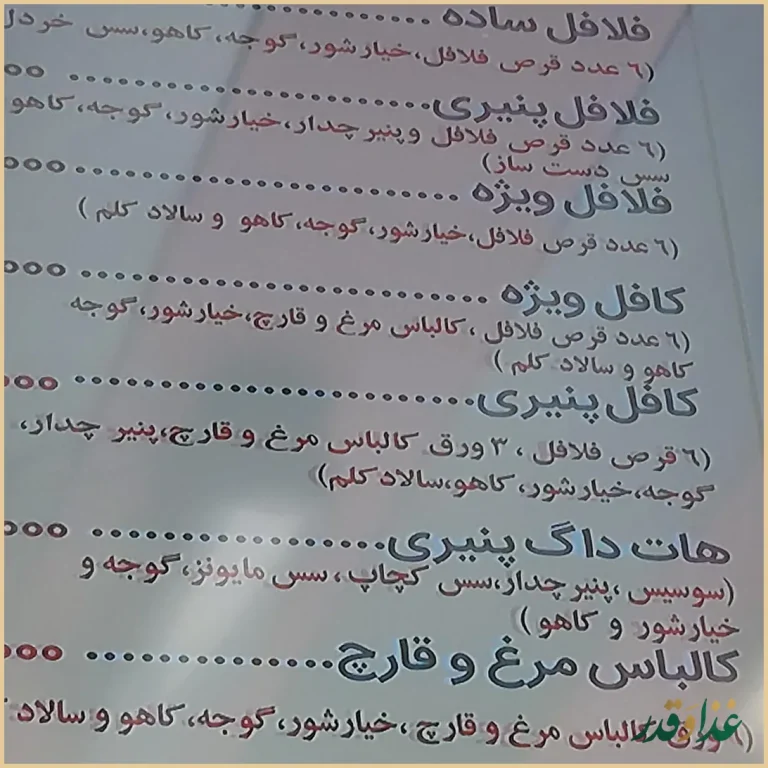 فلافل ساده ................
(٦ عدد قرص فلافل،خیارشور،گوجه،کاهو،سس خردل
فلافل پنیری...................... ٥٥
(٦ عدد قرص فلافل وپنیرچدار،خیارشور،گوجه،کاهو
سس دست ساز)
فلافل ویژه ......................... ٥٥٥
(٦ عدد قرص فلافل،خیارشور،گوجه،کاهو و سالاد کلم )
کافل ویژه ......................... ٥٥٥
(٦ عدد قرص فلافل ،کالباس مرغ و قارچ،خیارشور،گوجه
کاهو و سالاد کلم )
کافل پنیری......................... ٥٥٥
(٦ قرص فلافل ، ٣ ورق کالباس مرغ و قارچ،پنیر چدار،
گوجه،خیارشور،کاهو،سالادکلم)
هات داگ پنیری.................. ٥٥٥
(سوسیس ،پنیرچدار،سس کچاپ،سس مایونز،گوجه و
خیارشور و کاهو )
کالباس مرغ و قارچ............... ٥٥٥
ورق کالباس مرغ و قارچ ،خیارشور،گوجه،کاهو و سالاد
غذا و قدر